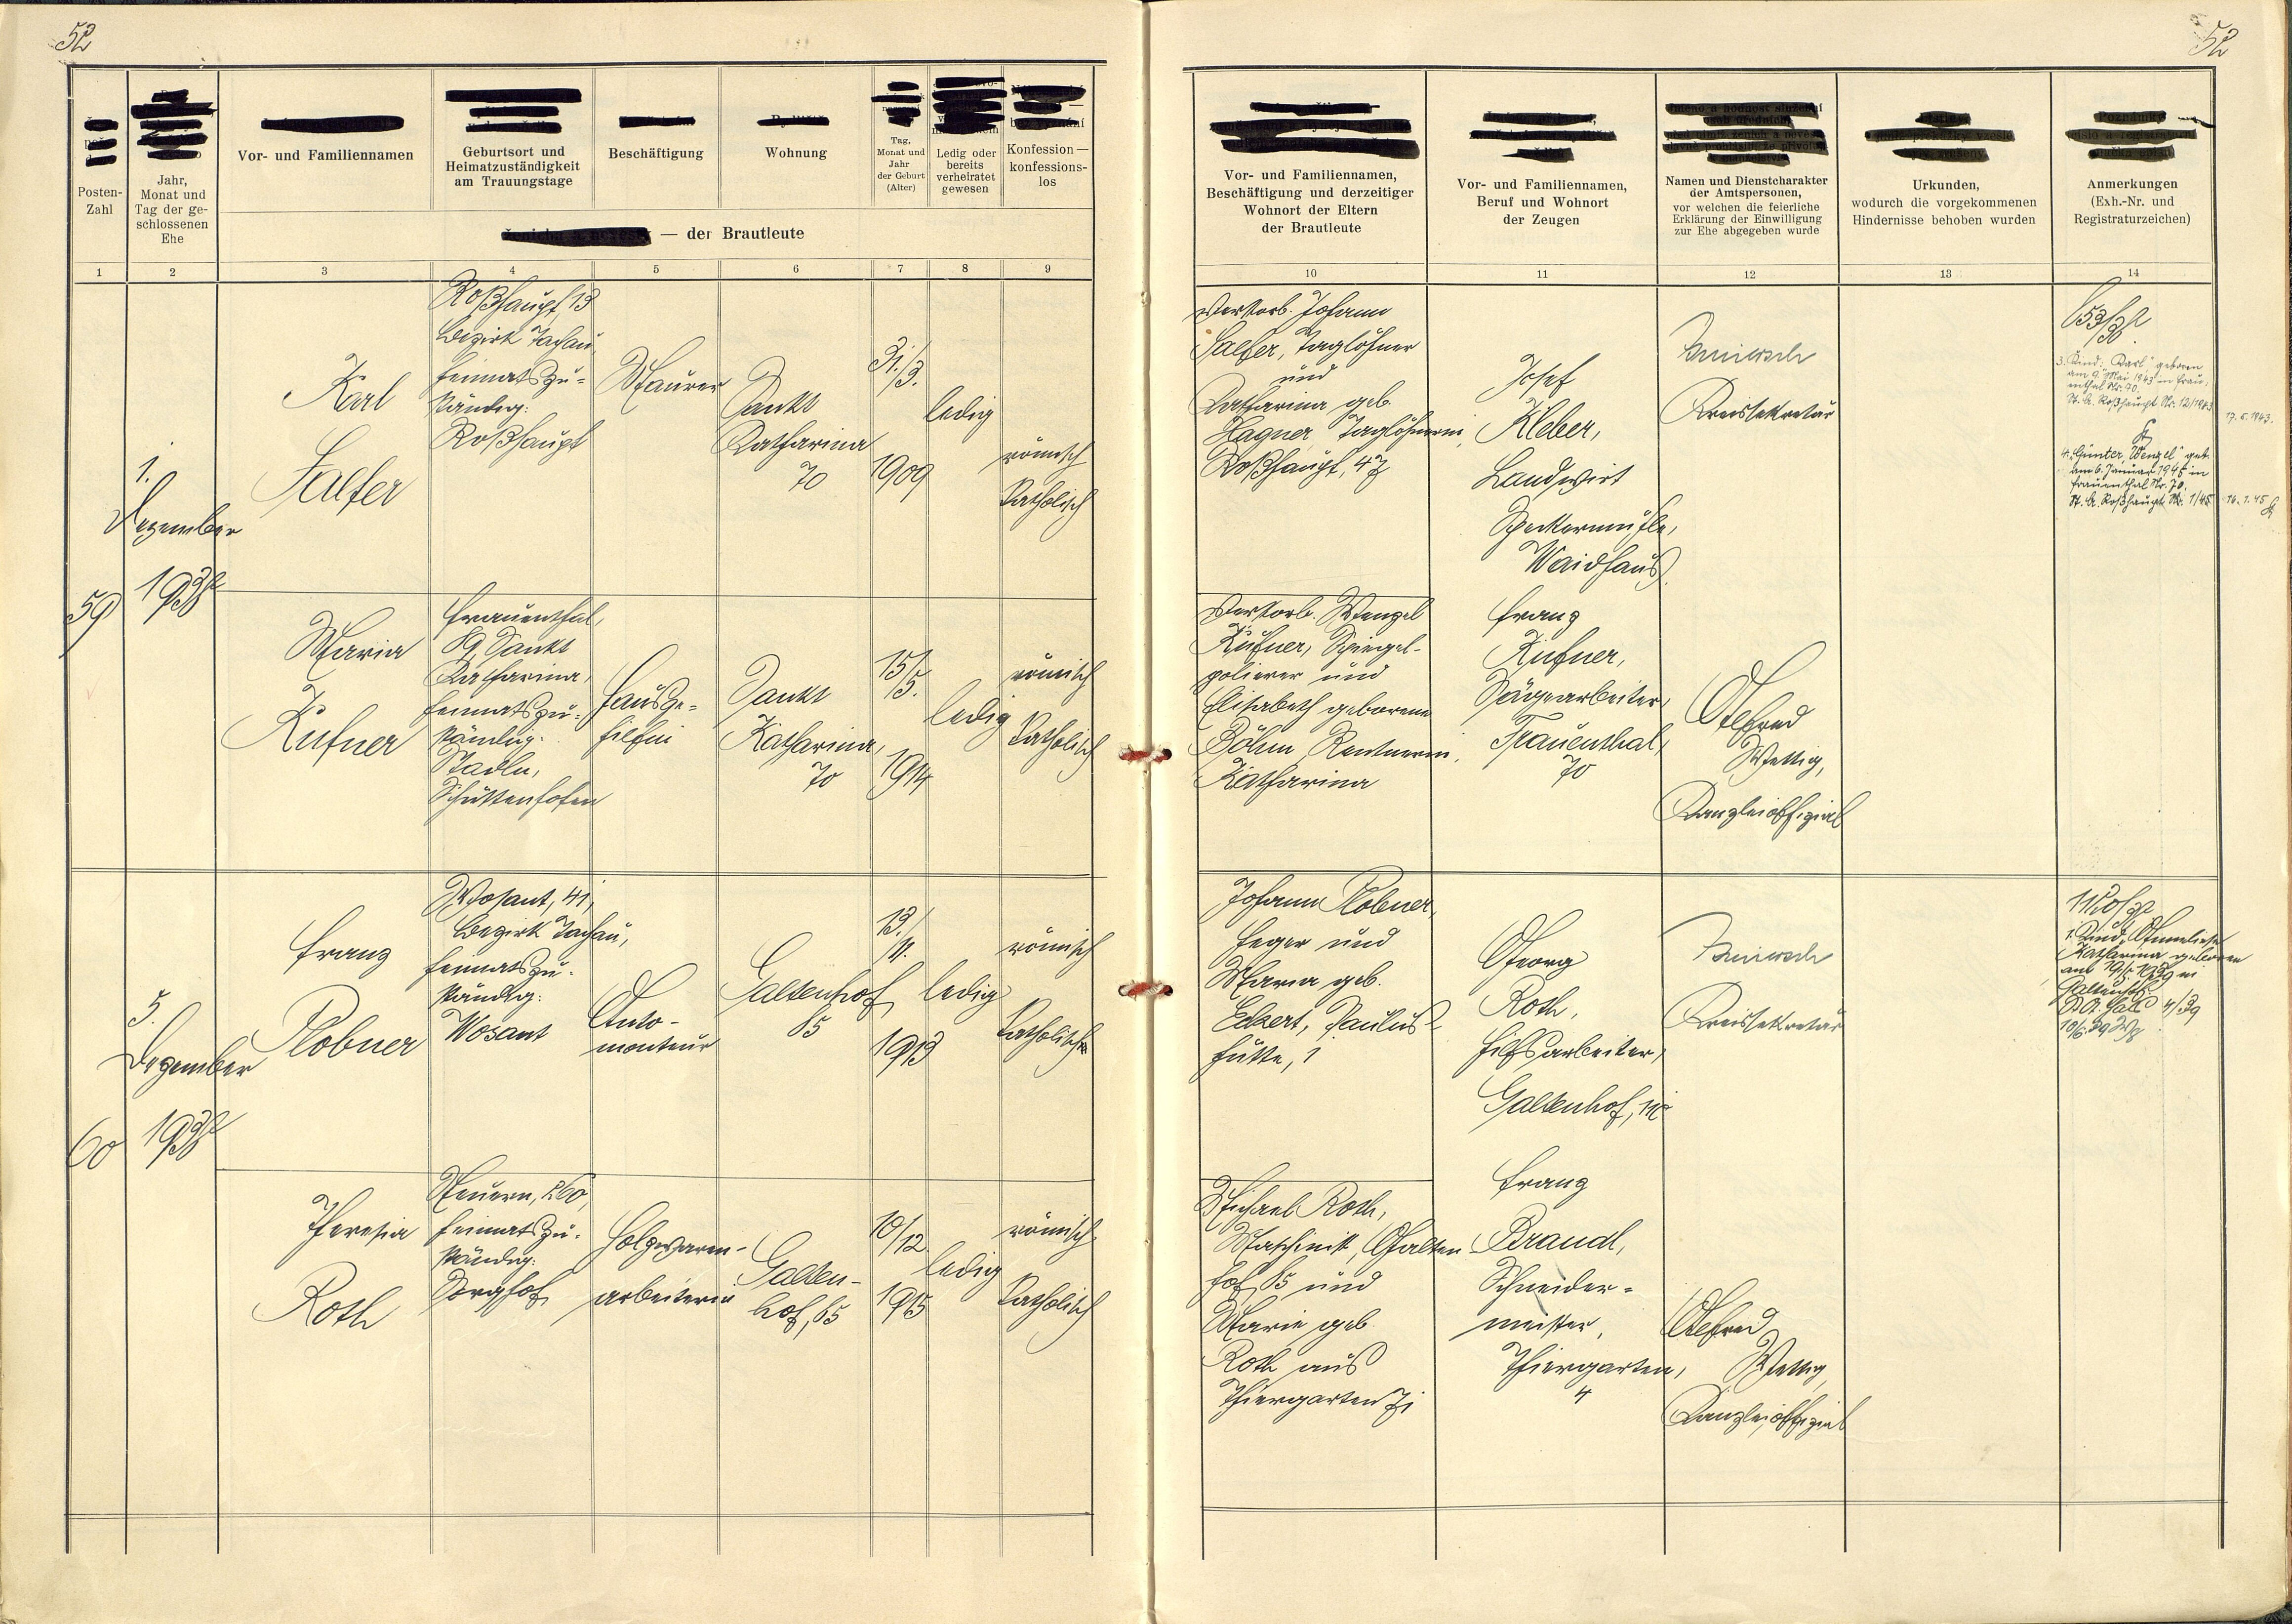 52
52
Posten-
Zahl
Jahr,
Monat und
Tag der ge-
schlossenen
Ehe
Vor- und Familiennamen
Geburtsort und
Heimatzuständigkeit
am Trauungstage
Beschäftigung
Wohnung
Tag,
Monat und
Jahr
der Geburt
(Alter)
Ledig oder
bereits
verheiratet
gewesen
Konfession —
konfessions-
los
— der Brautleute
Vor- und Familiennamen,
Beschäftigung und derzeitiger
Wohnort der Eltern
der Brautleute
Vor- und Familiennamen,
Beruf und Wohnort
der Zeugen
Namen und Dienstcharakter
der Amtspersonen,
vor welchen die feierliche
Erklärung der Einwilligung
zur Ehe abgegeben wurde
Urkunden,
wodurch die vorgekommenen
Hindernisse behoben wurden
Anmerkungen
(Exh.-Nr. und
Registraturzeichen)
1 2 3 4 5 6 7 8 9 10 11 12 13 14
59
1.
Dezember
1938
Karl
Salfer
Roßhaupt, 13
Bezirk Tachau
heimatszu-
ständig:
Roßhaupt
Maurer
Sankt
Katharina
70
31./3.
1909
ledig
römisch
katholisch
Verstorb. Johann
Salfer, Taglöhner
und
Katharina geb.
Hagner, Taglöhnerin,
Roßhaupt, 47
Josef
Kleber,
Landwirt
Waidhaus
Kreissekretär
3. Kind: "Karl" geboren
am 9. Mai 1943 in Frau-
enthal Nr. 70.
St. A. Roßhaupt Nr. 12/1943
17.5.1943.
4. "Günter Wenzel" geb.
am 6. Januar 1945 in
Frauenthal Nr. 70.
St. A. Roßhaupt Nr. 1/45
16.1.45
Maria
Kufner
Frauenthal,
Sankt
Katharina,
heimatszu-
ständig:
Stadln,
Schüttenhofen
Hausge-
hilfin
Sankt
Katharina,
70
15./5.
1914
ledig
römisch
katholisch
Verstorb. Wenzel
Kufner, Spiegel-
polierer und
Elisabeth geborene
Böhm, Rentnerin,
Katharina
Franz
Kufner,
Sägearbeiter,
Frauenthal,
70
Alfred
Wettig,
Kanzleioffizial
60
5.
Dezember
1938
Franz
Plobner
Wosant, 41,
Bezirk Tachau,
heimatszu-
ständig:
Wosant
Auto-
monteur
Galtenhof
85
13./11.
1913
ledig
römisch
katholisch
Johann Plobner,
Heger und
Maria geb.
Eckert, Paulus-
hütte, 1
Georg
Roth,
Hilfsarbeiter,
Galtenhof,
Kreissekretär
1. Kind:
Katharina geboren
Theresia
Roth
heimatszu-
ständig:
Sorghof
Holzwaren-
arbeiterin
Galten-
hof, 85
10/12.
1915
ledig
römisch
katholisch
Michael Roth,
Maschinist, Galten-
hof, 85 und
Marie geb.
Roth aus
Thiergarten 71
Franz
Brandl,
Schneider-
meister,
Thiergarten,
4
Alfred
Wettig,
Kanzleioffizial